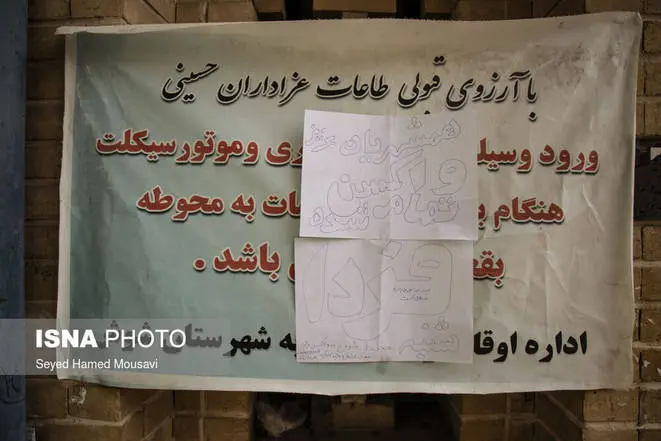 با آرزوی قبولی طاعات عزاداران حسینی
ورود وسیل ری وموتورسیکلت
هنگام ب ات به محوطه
بقع ی باشد .
اداره اوقا ه شهرستان شوش
همشهریان عزیز
واکسن
تمام شده
فردا
شنبه
ISNA PHOTO
Seyed Hamed Mousavi